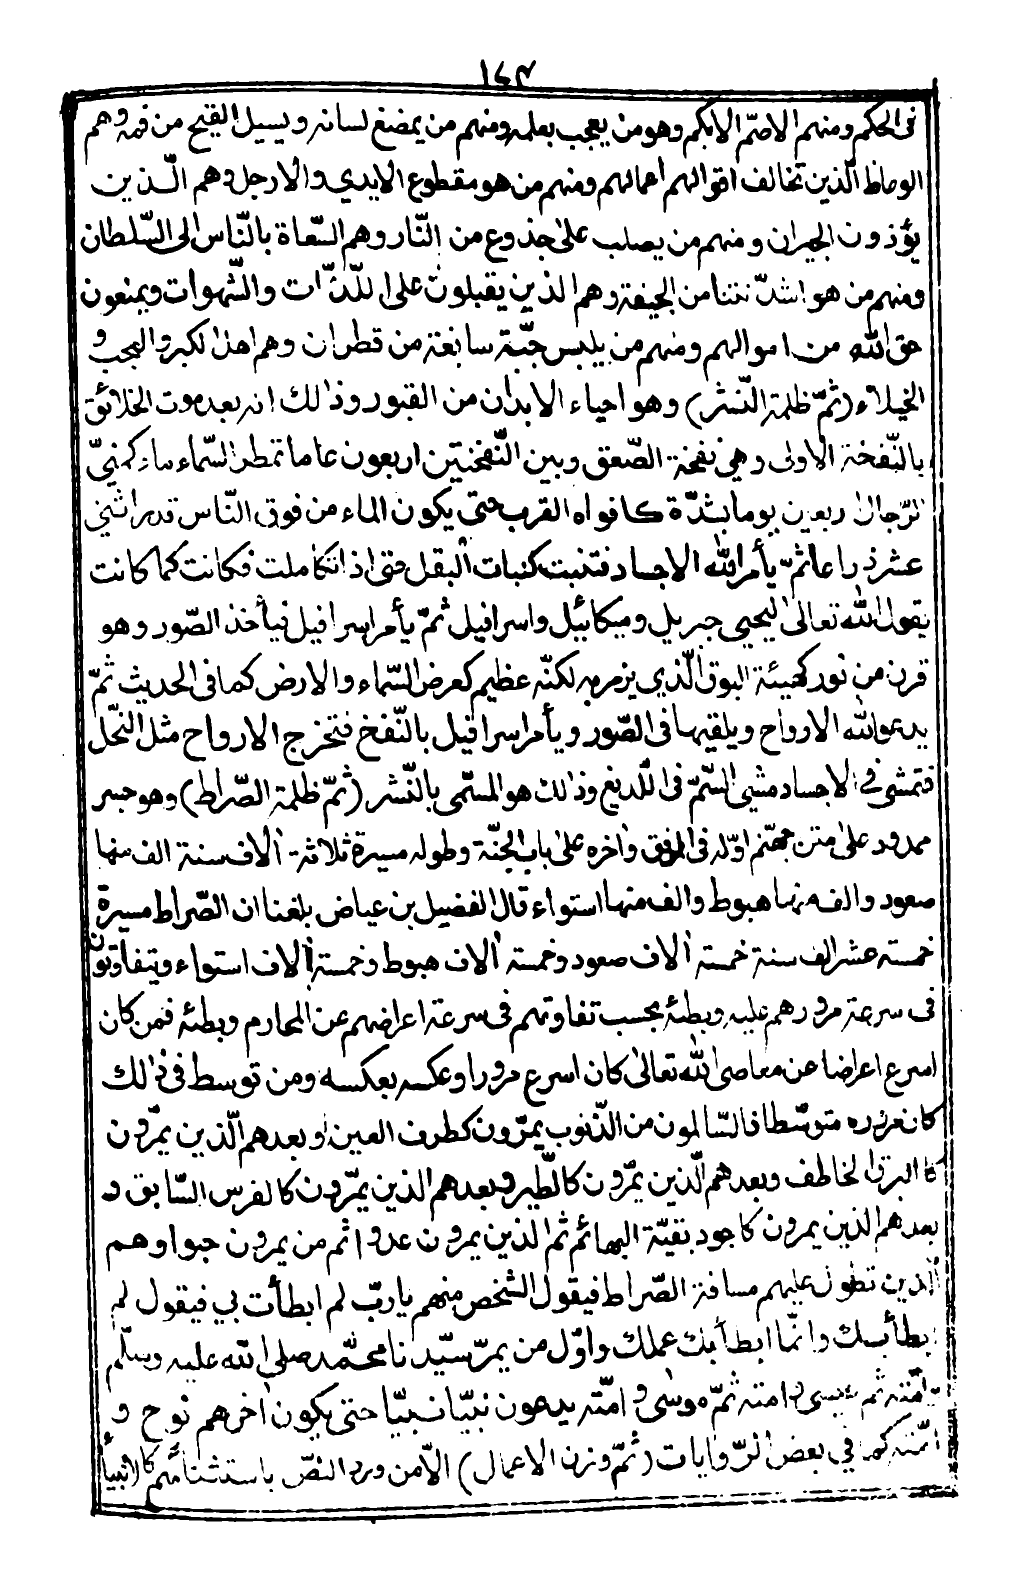 ١٤٣
فى الحكم ومنهم الاصمّ الابكم وهو من يعجب بعلمه ومنهم من يمضغ لسانه ويسيل القيح من فمه وهم
الوعاظ الّذين تخالف اقوالهم اعمالهم ومنهم من هو مقطوع الايدي والارجل وهم الّذين
يؤذون الجيران ومنهم من يصلب على جذوع من النّار وهم السّعاة بالنّاس الى السّلطان
ومنهم من هو اشدّ نتنا من الجيفة وهم الذين يقبلون على اللّذّات والشّهوات ويمنعون
حق الله من اموالهم ومنهم من يلبس جبّة سابغة من قطران وهم اهل الكبر والعجب و
الخيلاء (ثمّ ظلمة النّشر) وهو احياء الابدان من القبور وذٰلك انه بعد موت الخلائق
بالنّفخة الاولى وهي نفخة الصّعق وبين النّفختين اربعون عاما تمطر السّماء ماء كمنيّ
الرّجال اربعين يوما بشدّة كافواه القرب حتى يكون الماء من فوق النّاس قدر اثني
عشر ذراعا ثمّ يأمر الله الاجساد فتنبت كنبات البقل حتى اذا تكاملت فكانت كما كانت
يقول الله تعالى ليحيى جبريل وميكائيل واسرافيل ثمّ يأمر اسرافيل فيأخذ الصّور وهو
قرن من نور كهيئة البوق الّذي يزمر به لكنّه عظيم كعرض السّماء والارض كما فى الحديث ثمّ
يدعو الله الارواح ويلقيها فى الصّور ويأمر اسرافيل بالنّفخ فتخرج الارواح مثل النّحل
فتمشي في الاجساد مشي السّمّ فى اللّديغ وذٰلك هو المسمّى بالنّشر (ثمّ ظلمة الصّراط) وهو جسر
ممدود على متن جهنّم اوّله فى الموقف واٰخره على باب الجنّة وطوله مسيرة ثلاثة اٰلاف سنة الف منها
صعود والف منها هبوط والف منها استواء قال الفضيل بن عياض بلغنا ان الصّراط مسيرة
خمسة عشر الف سنة خمسة اٰلاف صعود وخمسة اٰلاف هبوط وخمسة اٰلاف استواء ويتفاوتون
فى سرعة مرورهم عليه وبطئه بحسب تفاوتهم فى سرعة اعراضهم عن المحارم وبطئه فمن كان
اسرع اعراضا عن معاصى الله تعالى كان اسرع مرورا وعكسه بعكسه ومن توسط فى ذٰلك
كان مروره متوسّطا فالسّالمون من الذّنوب يمرّون كطرف العين وبعدهم الّذين يمرّون
كالبرق الخاطف وبعدهم الّذين يمرّون كالطّير وبعدهم الذين يمرّون كالفرس السّابق و
بعدهم الذين يمرون كاجود بقيّة البهائم ثم الذين يمرون عدوا ثم من يمرون حبوا وهم
الّذين تطول عليهم مسافة الصّراط فيقول الشّخص منهم يا ربّ لم ابطأت بي فيقول لم
ابطأ بك وانّما ابطأ بك عملك واوّل من يمرّ سيّدنا محمّد صلى الله عليه وسلّم
وامّته ثم عيسى وامته ثمّ موسى وامّته يدعون نبيّا نبيّا حتى يكون اٰخرهم نوح و
امّته كما في بعض الرّوايات (ثمّ وزن الاعمال) الّا من ورد النصّ باستثنائهم كالانبيا